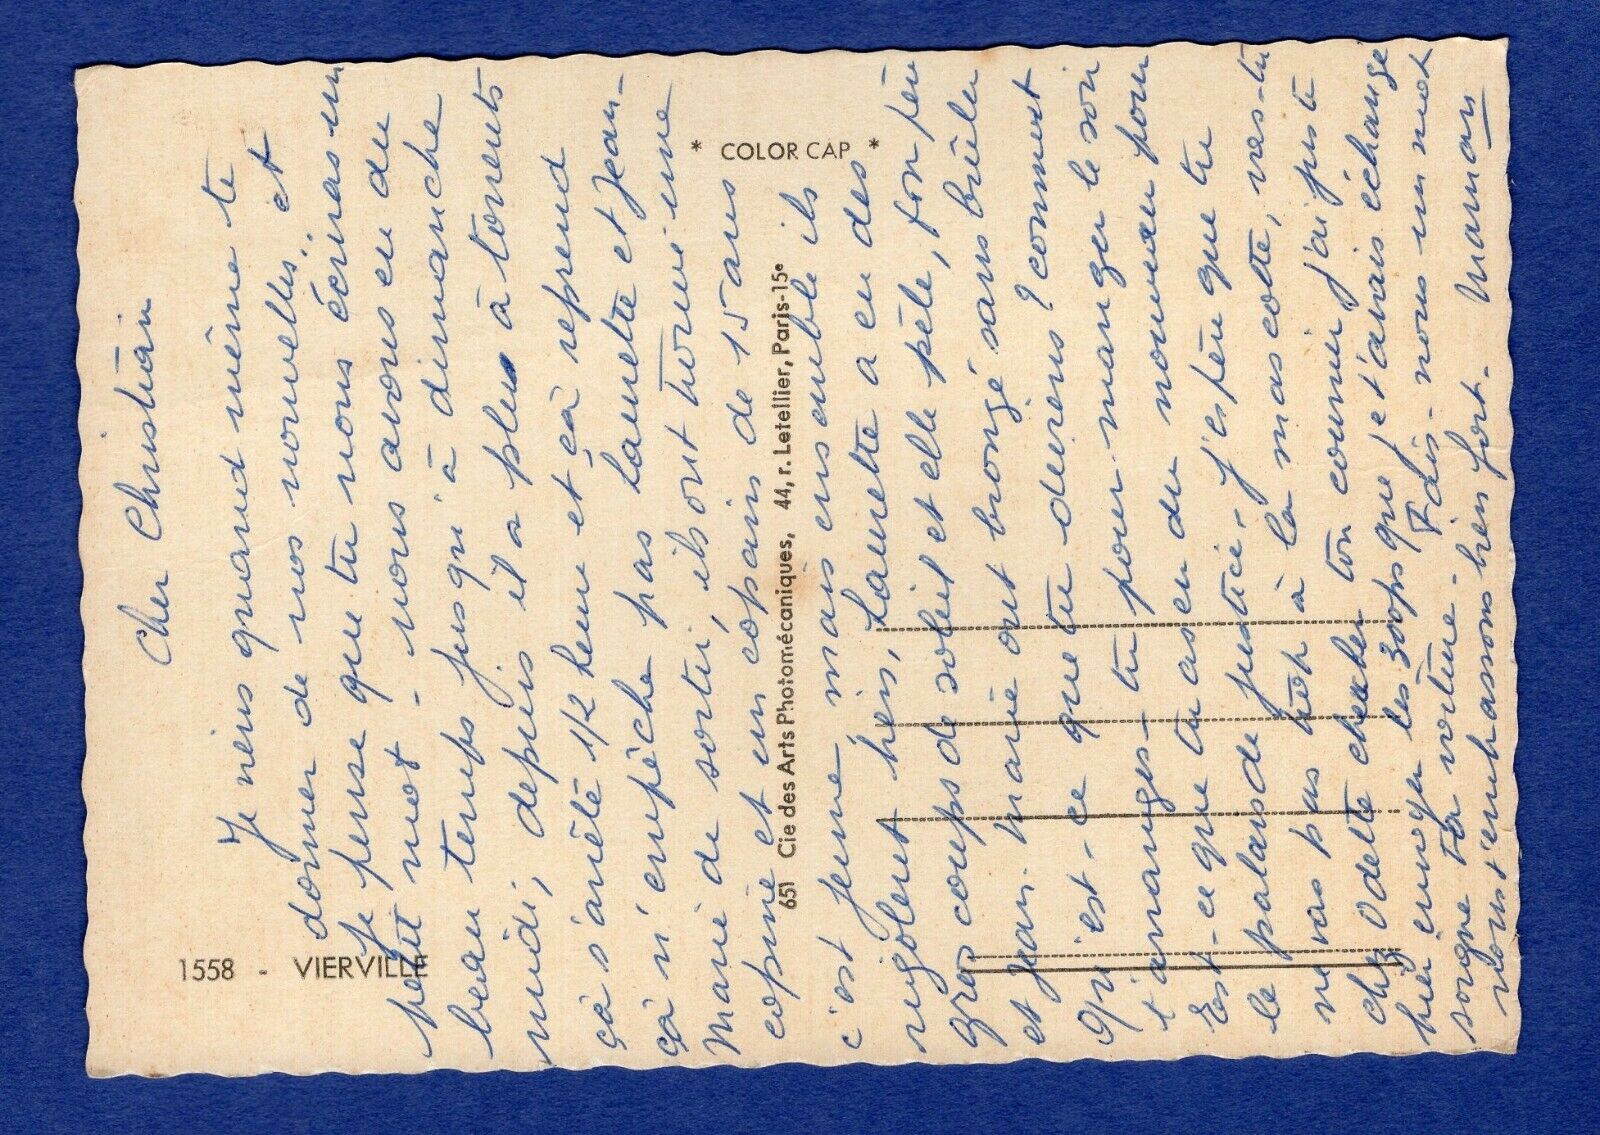 1558 - VIERVILLE
* COLOR CAP *
651 Cie des Arts Photomécaniques, 44, r. Letellier, Paris-15e
Cher Christian
Je viens quand même te
donner de nos nouvelles, et
je pense que tu nous écriras un
petit mot - nous avons eu du
beau temps jusqu'à dimanche
midi, depuis il a plus à torrents
çà s'arrête 1/2 heure et çà reprend
çà n'empêche pas Laurette et Jean-
Marie de sortir, ils ont trouvé une
copine et un copain de 15 ans
c'est jeune, mais ensemble ils
rigolent bien, Laurette a eu des
gros coups de soleil et elle pèle, ton père
et Jean-Marie ont bronzé sans brûler
Qu'est-ce que tu deviens? comment
t'arranges-tu pour manger le soir
Est-ce que tu as eu du nouveau pour
le palais de justice - j'espère que tu
ne vas pas trop à la mascotte, vas-tu
chez Odette chercher ton courrier j'ai juste
hier envoyer les 300ps que je t'avais échangé
soigne ta voiture - Fais-nous un mot
nous t'embrassons bien fort - Maman